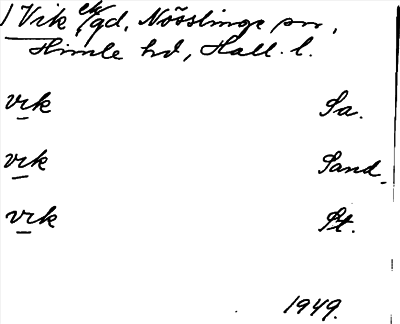 Vik ek/gd, Nösslinge sn,
Himle hd, Hall. l.
vik Sa.
vik Sand.
vik St.
1949.